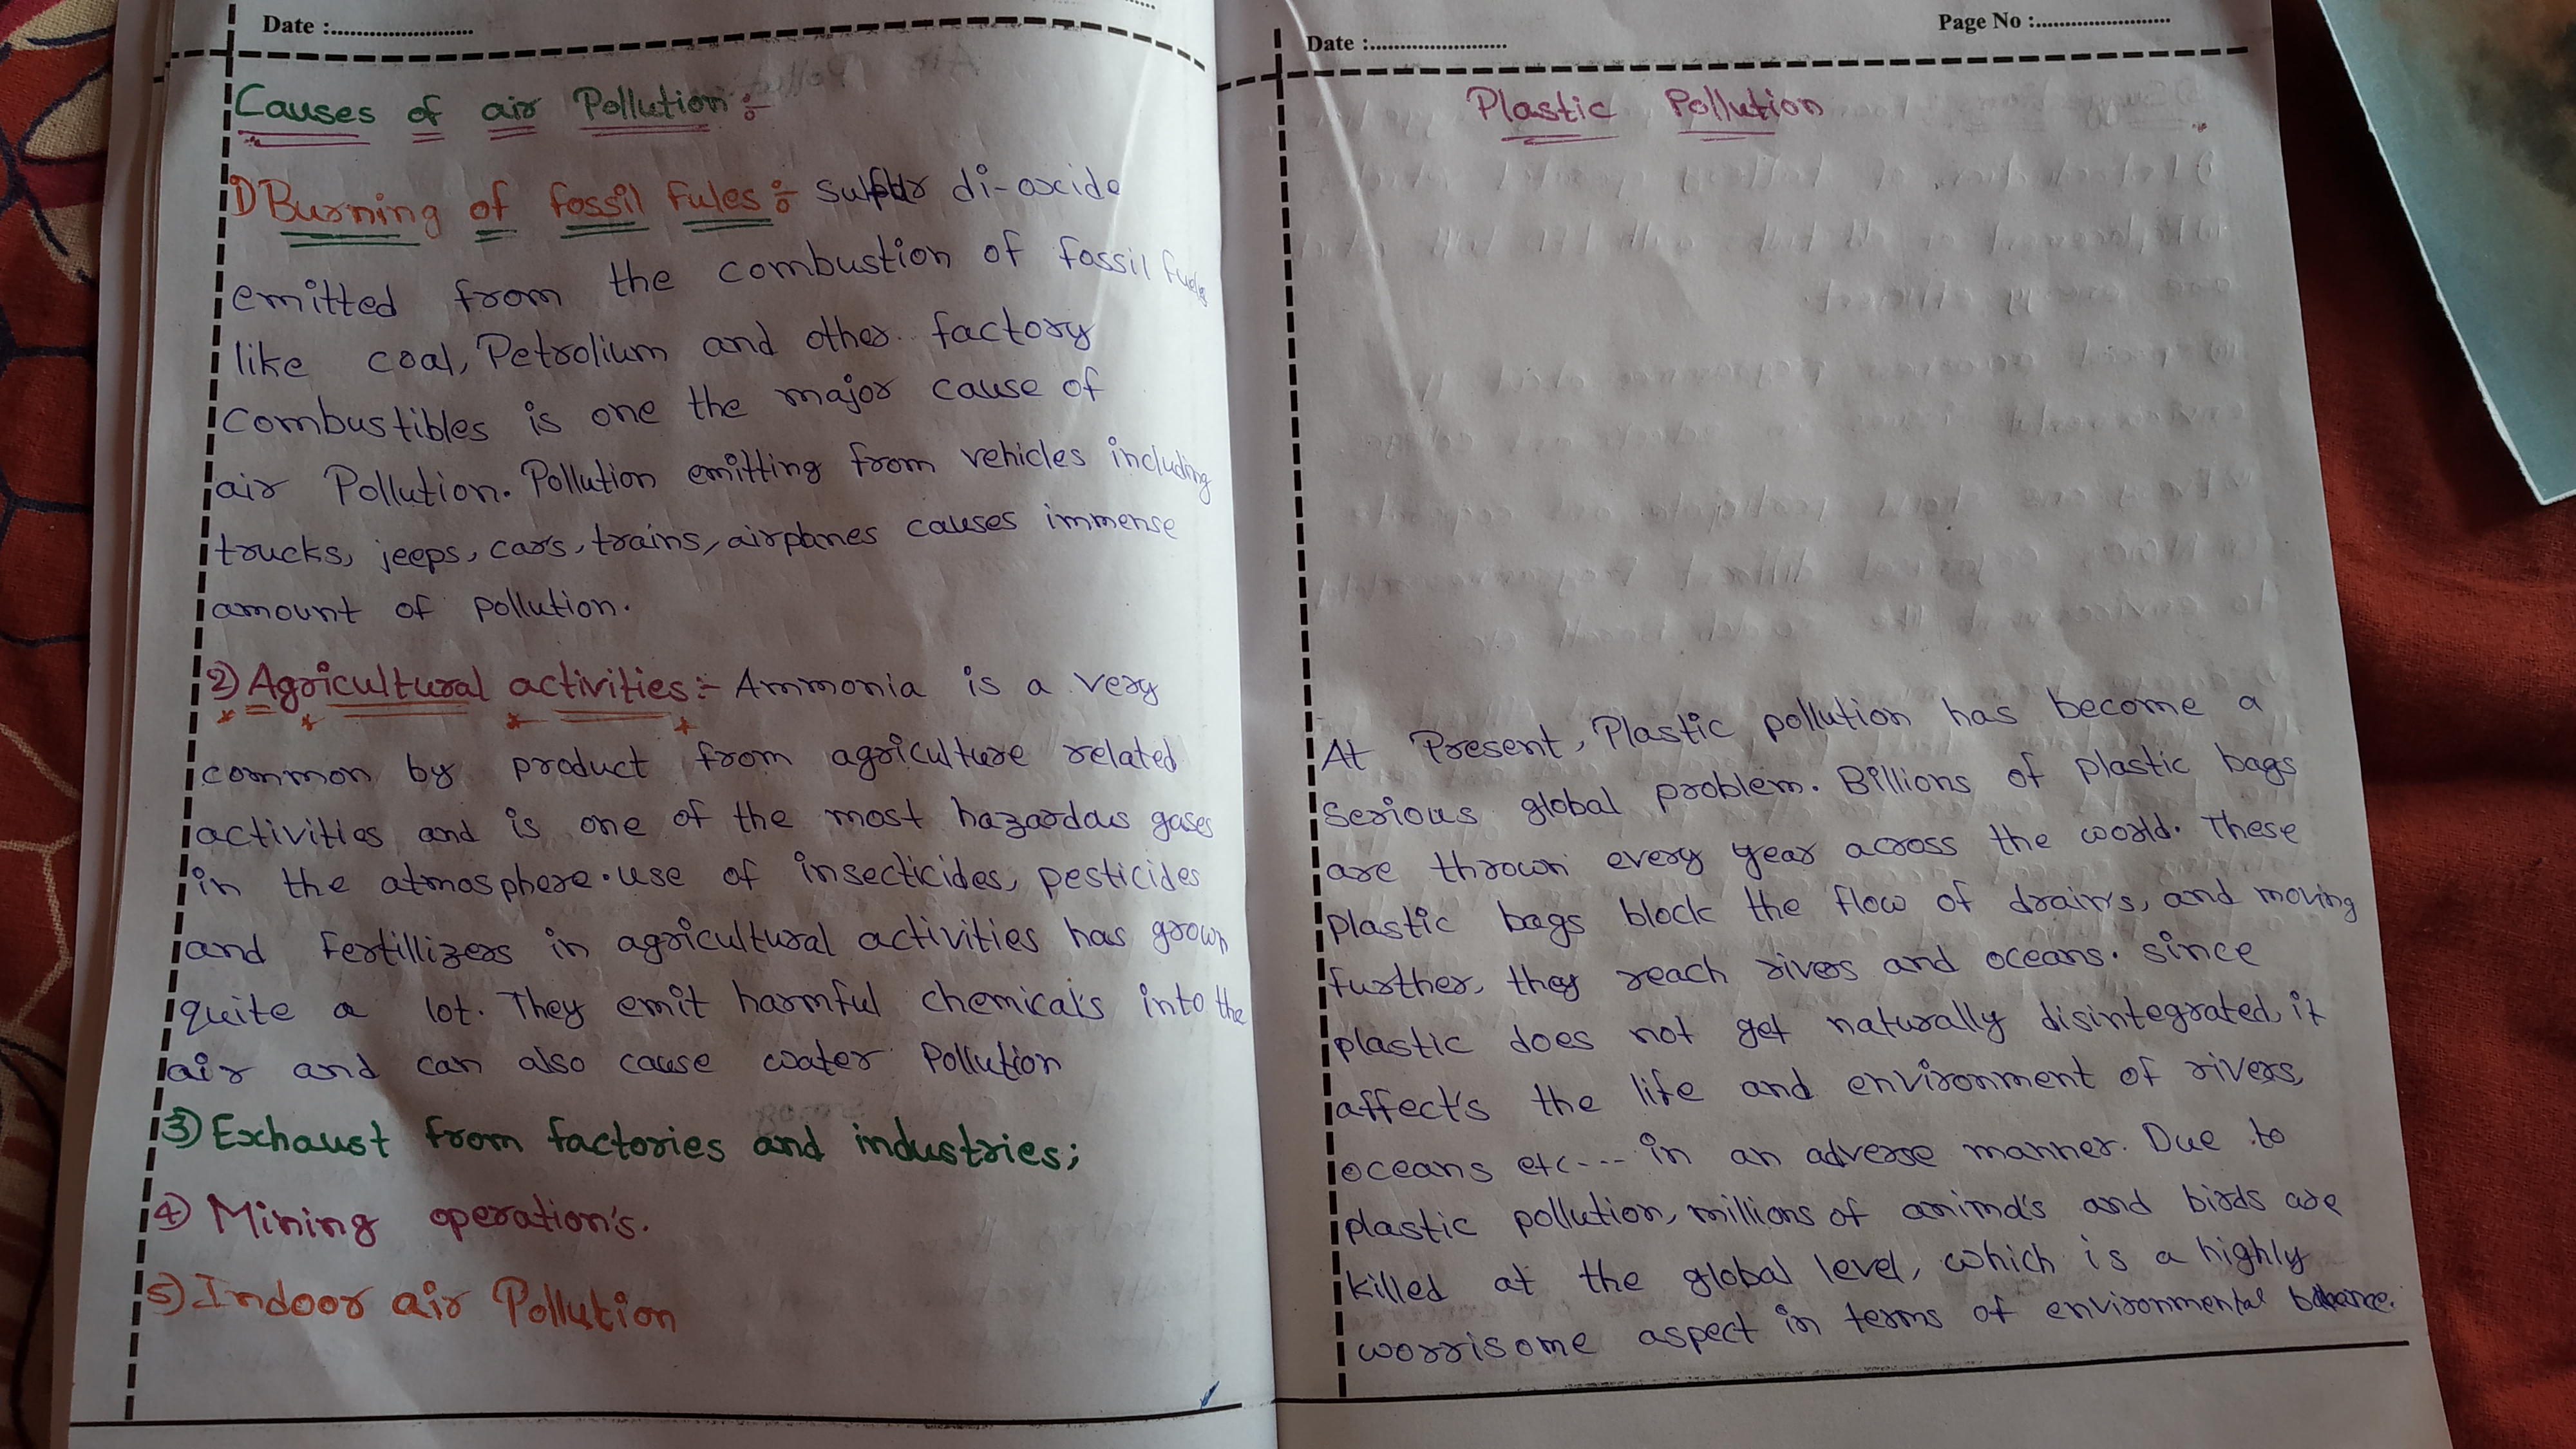 Date :........................
Causes of air Pollution :-
1) Burning of fossil fules :- Sulphur di-oxide
emitted from the combustion of fossil fuels
like coal, Petrolium and other factory
Combustibles is one the major cause of
air Pollution. Pollution emitting from vehicles including
trucks, jeeps, cars, trains, airplanes causes immense
amount of pollution.
2) Agricultural activities :- Ammonia is a very
common by product from agriculture related
activities and is one of the most hazardous gases
in the atmosphere. use of insecticides, pesticides
and Fertillizers in agricultural activities has grown
quite a lot. They emit harmful chemical's into the
air and can also cause water Pollution
3) Exhaust from factories and industries;
4) Mining operation's.
5) Indoor air Pollution
Page No :........................
Date :........................
Plastic Pollution
At Present, Plastic pollution has become a
serious global problem. Billions of plastic bags
are thrown every year across the world. These
plastic bags block the flow of drain's, and moving
further, they reach rivers and oceans. since
plastic does not get naturally disintegrated, it
affect's the life and environment of rivers,
oceans etc--- in an adverse manner. Due to
plastic pollution, millions of animal's and birds are
killed at the global level, which is a highly
worrisome aspect in terms of environmental balance.